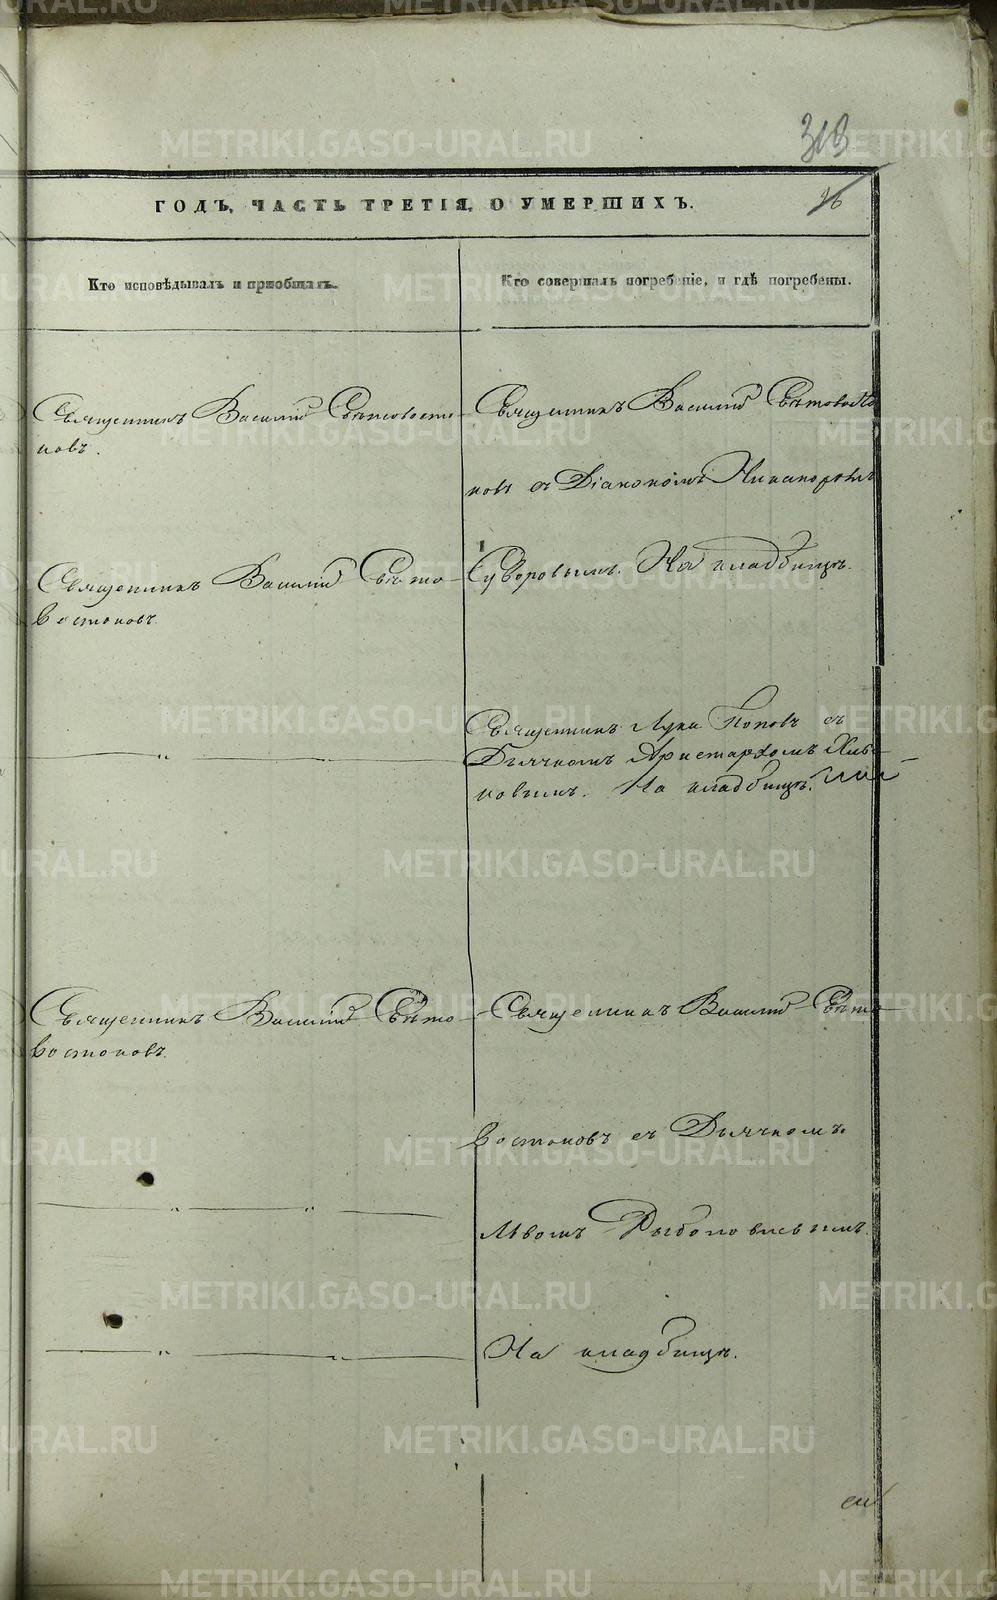 313
26
ГОДЪ, ЧАСТЬ ТРЕТІЯ, О УМЕРШИХЪ.
Кто исповѣдывалъ и пріобщалъ.
Кто совершалъ погребеніе, и гдѣ погребены.
Священникъ Василій Свѣтовосто-
ковъ.
Священникъ Василій Свѣтовосто-
ковъ съ Діакономъ Никаноромъ
Суворовымъ. На кладбищѣ.
Священникъ Василій Свѣто-
востоковъ.
Священникъ Лука Поповъ съ
Дьячкомъ Аристархомъ
новымъ. На кладбищѣ.
Священникъ Василій Свѣто-
востоковъ.
Священникъ Василій Свѣто-
востоковъ съ Дьячкомъ
Львомъ
На кладбищѣ.
METRIKI.GASO-URAL.RU